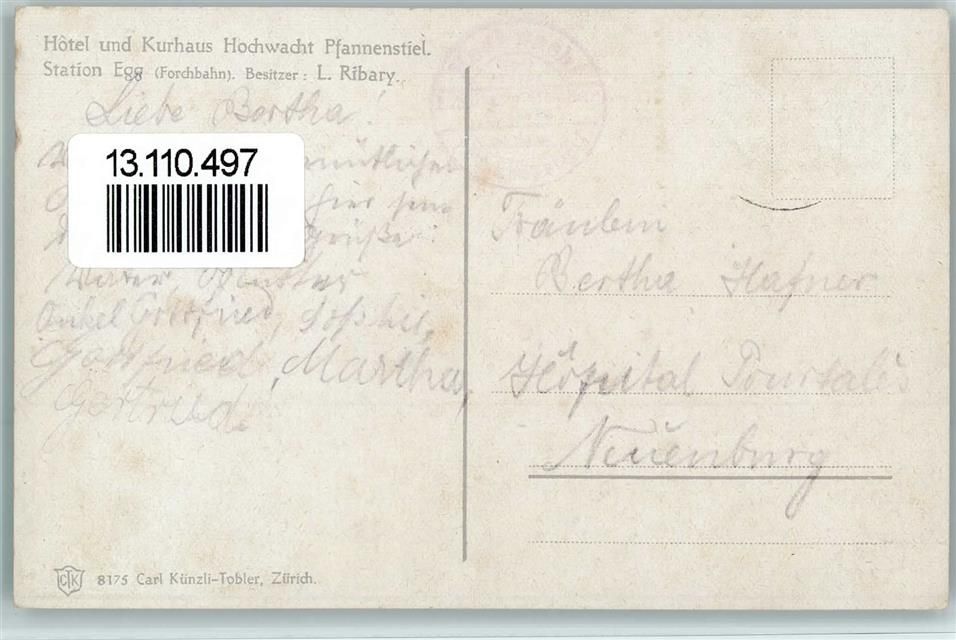 Hôtel und Kurhaus Hochwacht Pfannenstiel.
Station Egg (Forchbahn). Besitzer: L. Ribary.
Liebe Bertha!
13.110.497
hier
Grüße
Vater, Mutter
Onkel Gottfried, Sophie,
Gottfried, Martha,
Gertrud.
Fräulein
Bertha Hafner
Hôpital Pourtalès
Neuenburg
CTK 8175 Carl Künzli-Tobler, Zürich.